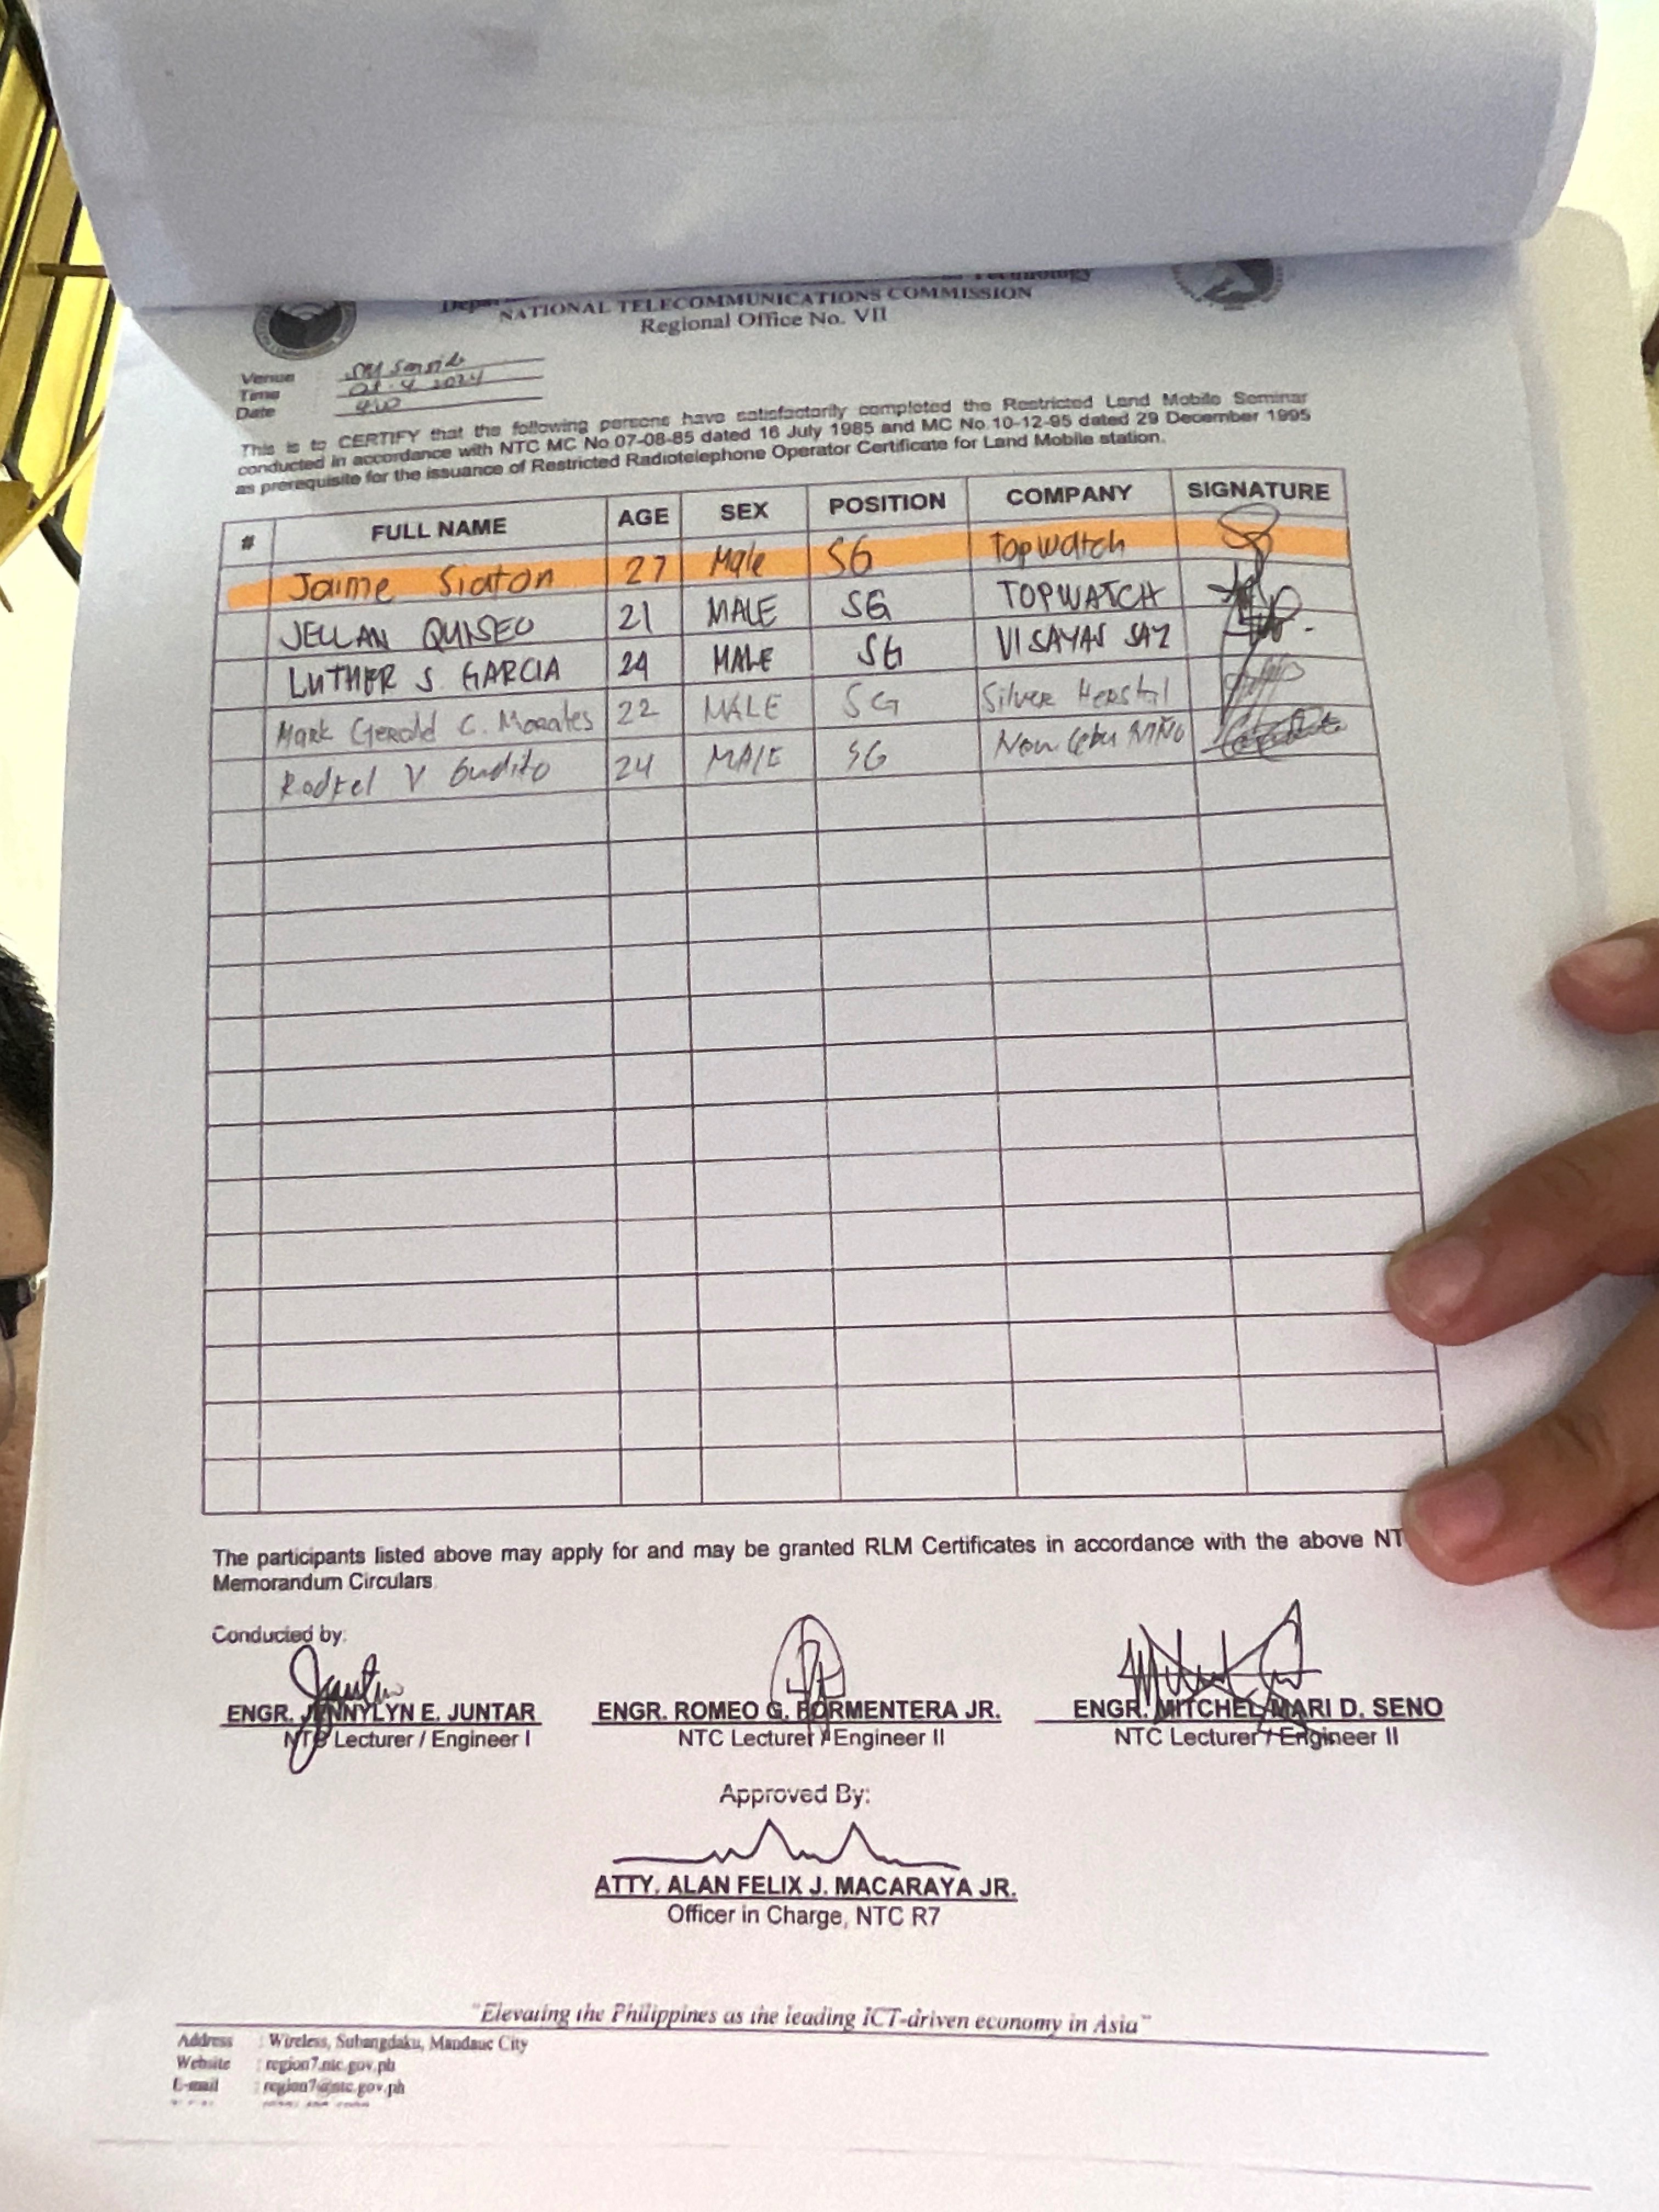 Technology
NATIONAL TELECOMMUNICATIONS COMMISSION
Regional Office No. VII
Venue : SM Seaside
Time : 4 2024
Date :
This is to CERTIFY that the following persons have satisfactorily completed the Restricted Land Mobile Seminar
conducted in accordance with NTC MC No.07-08-85 dated 16 July 1985 and MC No.10-12-95 dated 29 December 1995
as prerequisite for the issuance of Restricted Radiotelephone Operator Certificate for Land Mobile station.
# FULL NAME AGE SEX POSITION COMPANY SIGNATURE
Jaime Siaton 27 Male SG Topwatch
JELLAN QUISEO 21 MALE SG TOPWATCH
LUTHER S. GARCIA 24 MALE SG VISAYAS
Mark Gerald C. Morales 22 MALE SG Silver
V 24 MALE SG New Cebu NIÑO
The participants listed above may apply for and may be granted RLM Certificates in accordance with the above NT
Memorandum Circulars.
Conducted by:
ENGR. JENNYLYN E. JUNTAR ENGR. ROMEO G. FORMENTERA JR. ENGR. MITCHEL MARI D. SENO
NTC Lecturer / Engineer I NTC Lecturer / Engineer II NTC Lecturer / Engineer II
Approved By:
ATTY. ALAN FELIX J. MACARAYA JR.
Officer in Charge, NTC R7
"Elevating the Philippines as the leading ICT-driven economy in Asia"
Address : Wireless, Subangdaku, Mandaue City
Website : region7.ntc.gov.ph
E-mail : region7@ntc.gov.ph